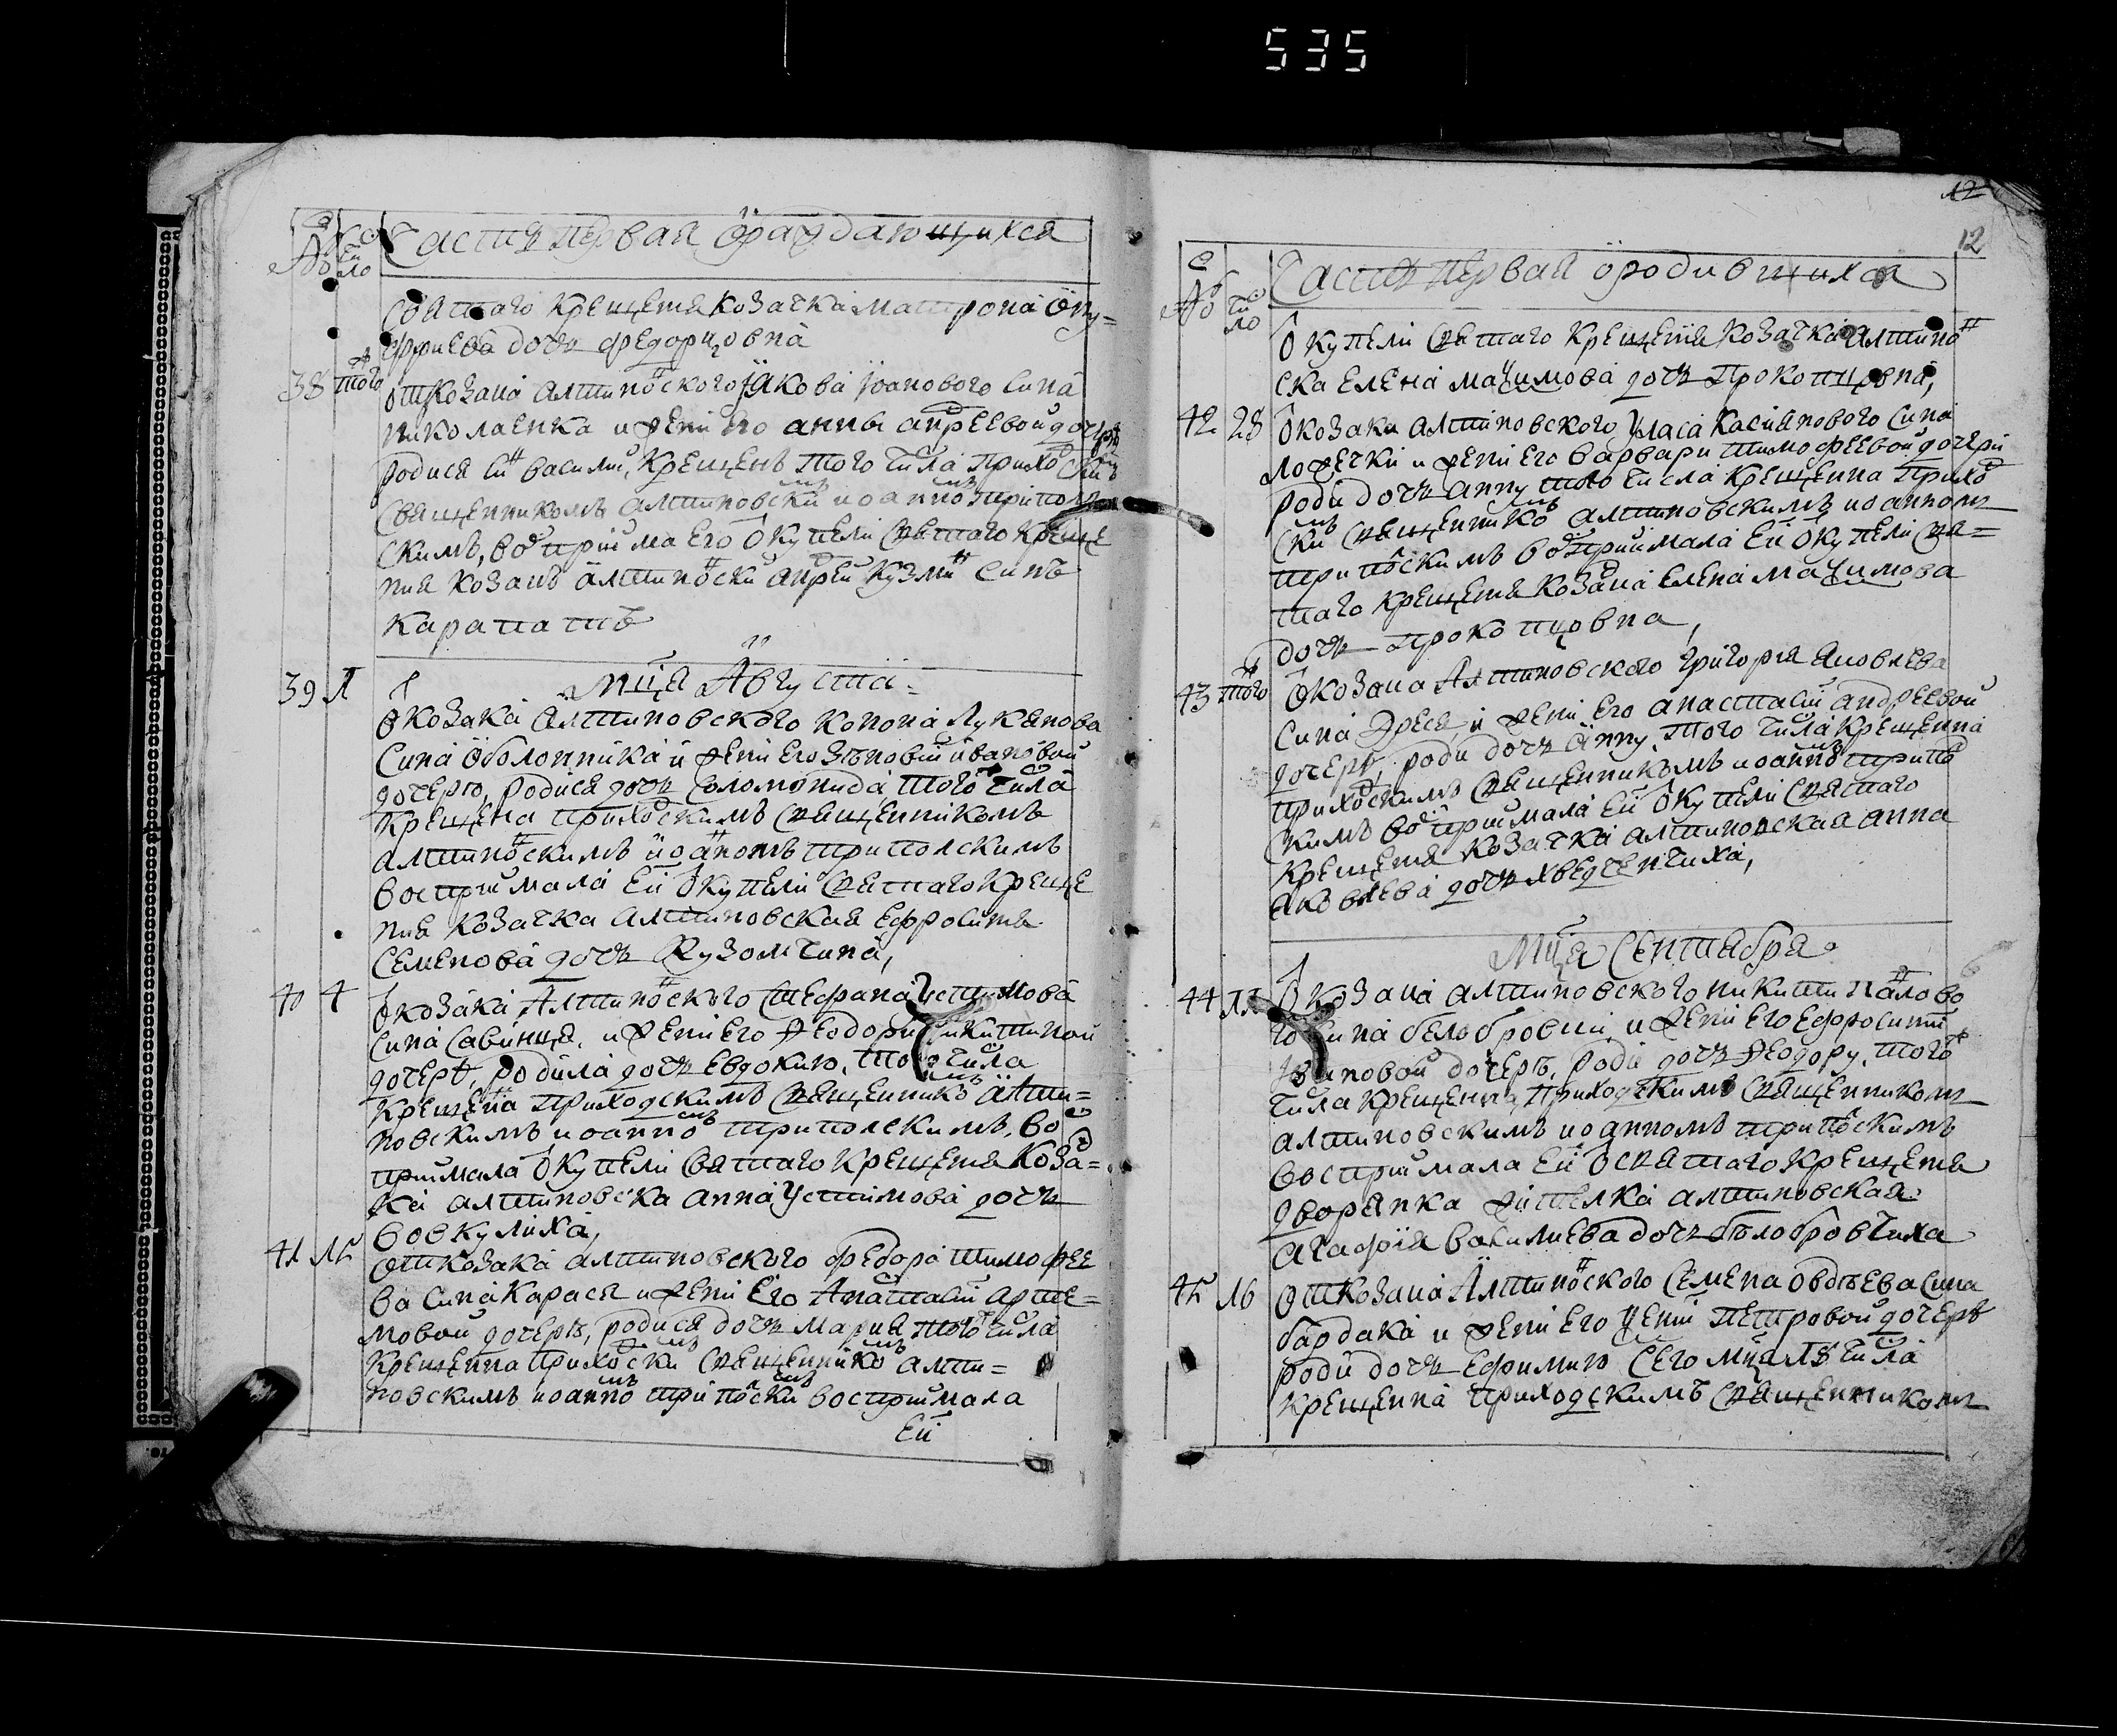 535
Часть первая о раждающихся
святаго крещения козачка матрона ону=
ефриева дочь федорцовна
38 того
от козака алтиновского Иакова Иванового сина
николаенка и жени его анны андреевой дочерѣ
родися синъ василий, крещенъ того числа приходскимъ
священникомъ алтиновскимъ иоанномъ триполскимъ
скимъ, восприима его от купели святаго креще
ния козакъ алтиновский андрей кузминъ синъ
карапать
мца Августа
39 1
от козака алтиновского конона Лукянова
сина оболонника и жени его зѣновии ивановой
дочерѣ, родися дочь соломонида того числа
крещена приходскимъ священникомъ
алтиновскимъ иоанномъ триполскимъ
восприимала ей от купели святаго креще
ния козачка алтиновская ефросиния
семенова дочь Кузомчина,
40 4
от козака Алтиновского Стефана Устимова
сина савинца, и жени его Феодори никитиной
дочерѣ, родила дочь евдокию, того числа
крещена приходскимъ священникомъ Алти=
новскимъ иоанномъ триполскимъ, вос
приимала от купели святаго крещения козач=
ка алтиновска анна Устимова дочь
вовкулиха,
41 15
от козака алтиновского федора тимофее
ва сина Карася и жени его Анастасии арте=
мовой дочерѣ, родися дочь мария, того числа
крещенна приходскимъ священникомъ алти=
новскимъ иоанномъ триполскимъ восприимала
ей
12
12
Часть первая о родившихся
от купели святаго крещения козачка алтинов
ска елена маѯимова дочь Прокопцовна,
42 28
от козака алтиновского Уласа Касиянового сина
ложечки и жени его варвари тимофеевой дочери
роди дочь анну того числа крещенна приход
скимъ священникомъ алтиновскимъ иоанномъ
триполскимъ восприимала ей от купели свя=
таго крещения козачка елена маѯимова
дочь прокопцовна,
43 того
от козака Алтиновского григория яковлева
сина и жени его анастасии андреевой
дочерѣ, роди дочь анну, того числа крещенна
приходскимъ священникомъ иоанномъ трипол
скимъ восприимала ей от купели святаго
крещения козачка алтиновская анна
яковлева дочь хведченчиха,
Мца Сентября
44 11
от козака алтиновского никити павлово
го сина белобровий и жени его ефросинии
Ивановой дочерѣ, роди дочь феодору, того
числа крещенна, приходскимъ священникомъ
алтиновскимъ иоанномъ триполскимъ
восприимала ей от святаго крещения
дворянка жителка алтиновская
агафия василиева дочь бѣлобровчиха
45 16
от козака Алтиновского Семена овдѣева сина
бардака и жени его петровой дочерѣ
роди дочь ефимию сего мца числа
крещенна приходскимъ священникомъ